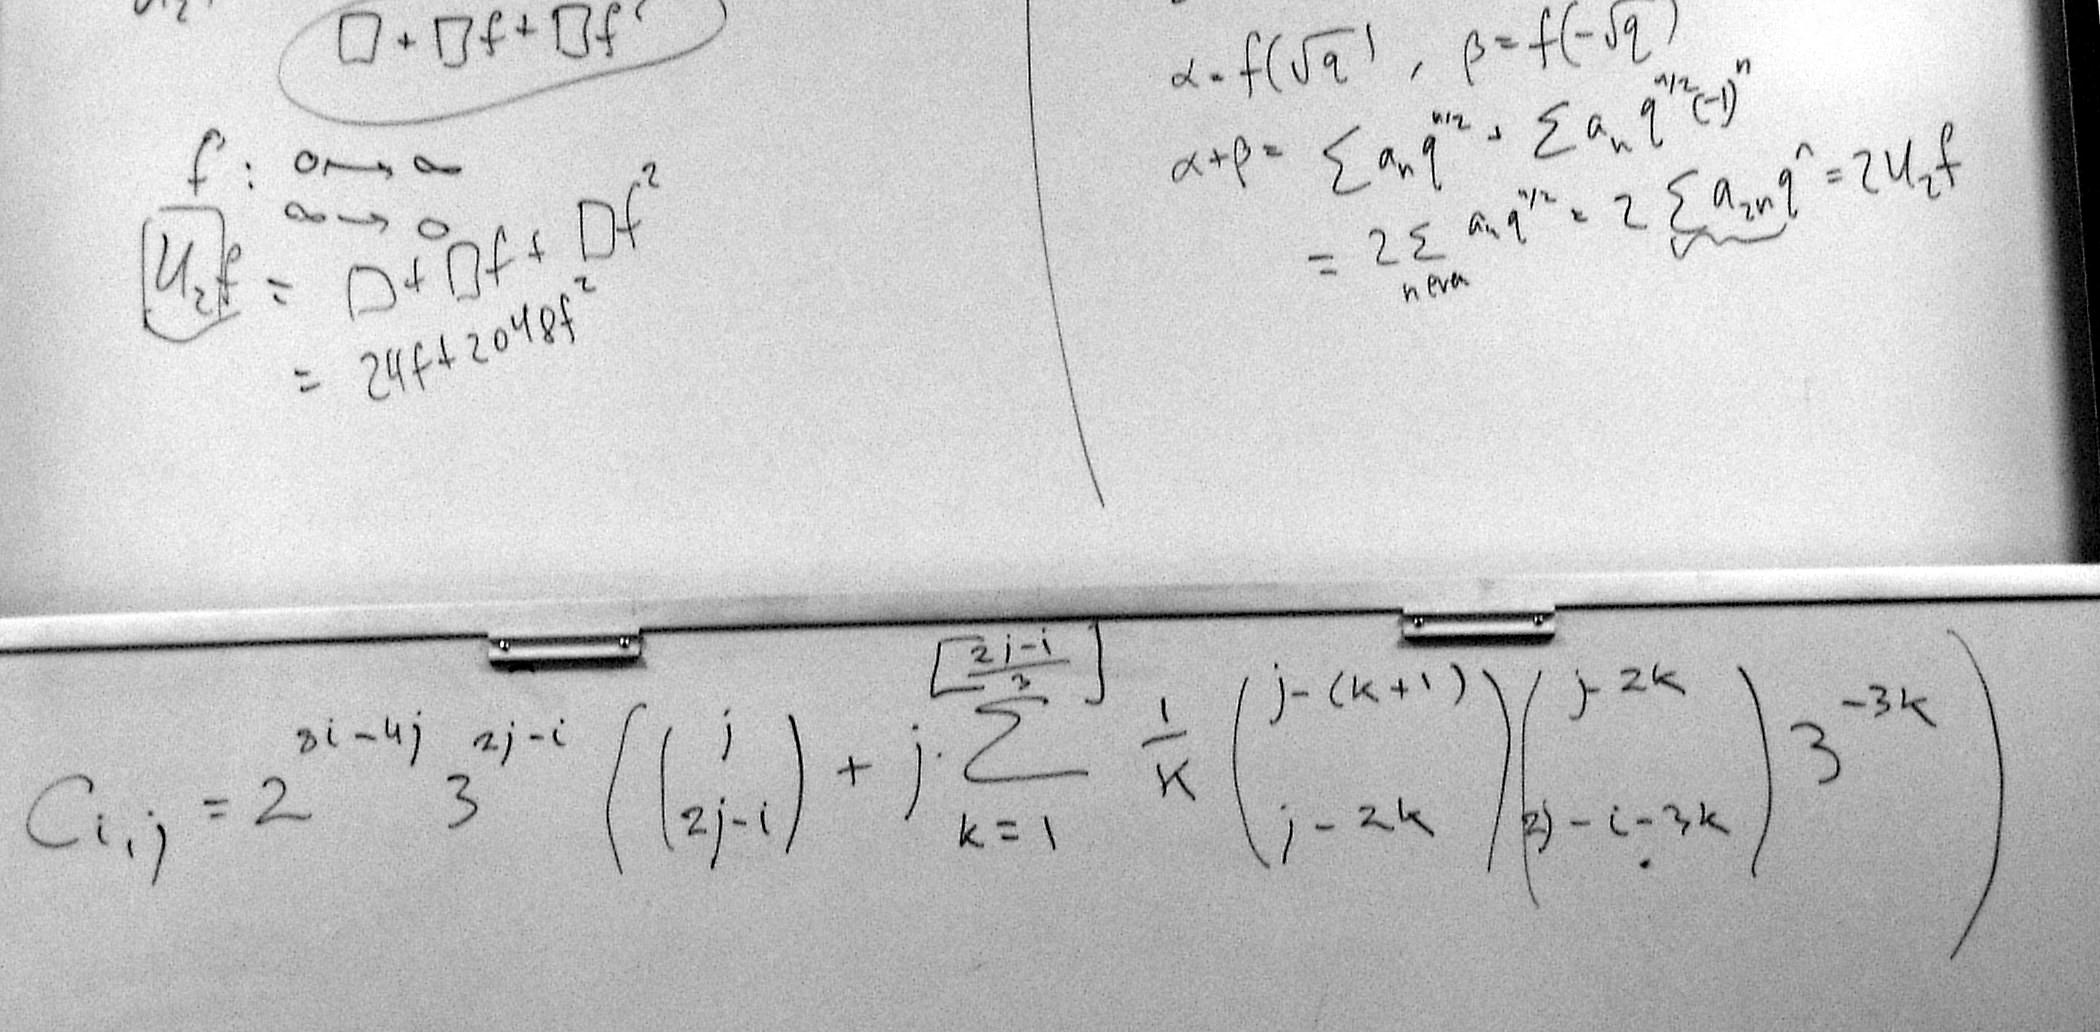 □ + □f + □f²
f : 0 → ∞
∞ → 0
U₂f = □ + □f + □f²
= 24f + 2048f²
α = f(√q), β = f(-√q)
α+β = Σ aₙ q^{n/2} + Σ aₙ q^{n/2} (-1)ⁿ
= 2 Σ_{n even} aₙ q^{n/2} = 2 Σ a₂ₙ qⁿ = 2U₂f
C_{i,j} = 2^{8i-4j} 3^{2j-i} ( \binom{j}{2j-i} + j · Σ_{k=1}^{[\frac{2j-i}{3}]} \frac{1}{k} \binom{j-(k+1)}{j-2k} \binom{j-2k}{2j-i-3k} 3^{-3k} )